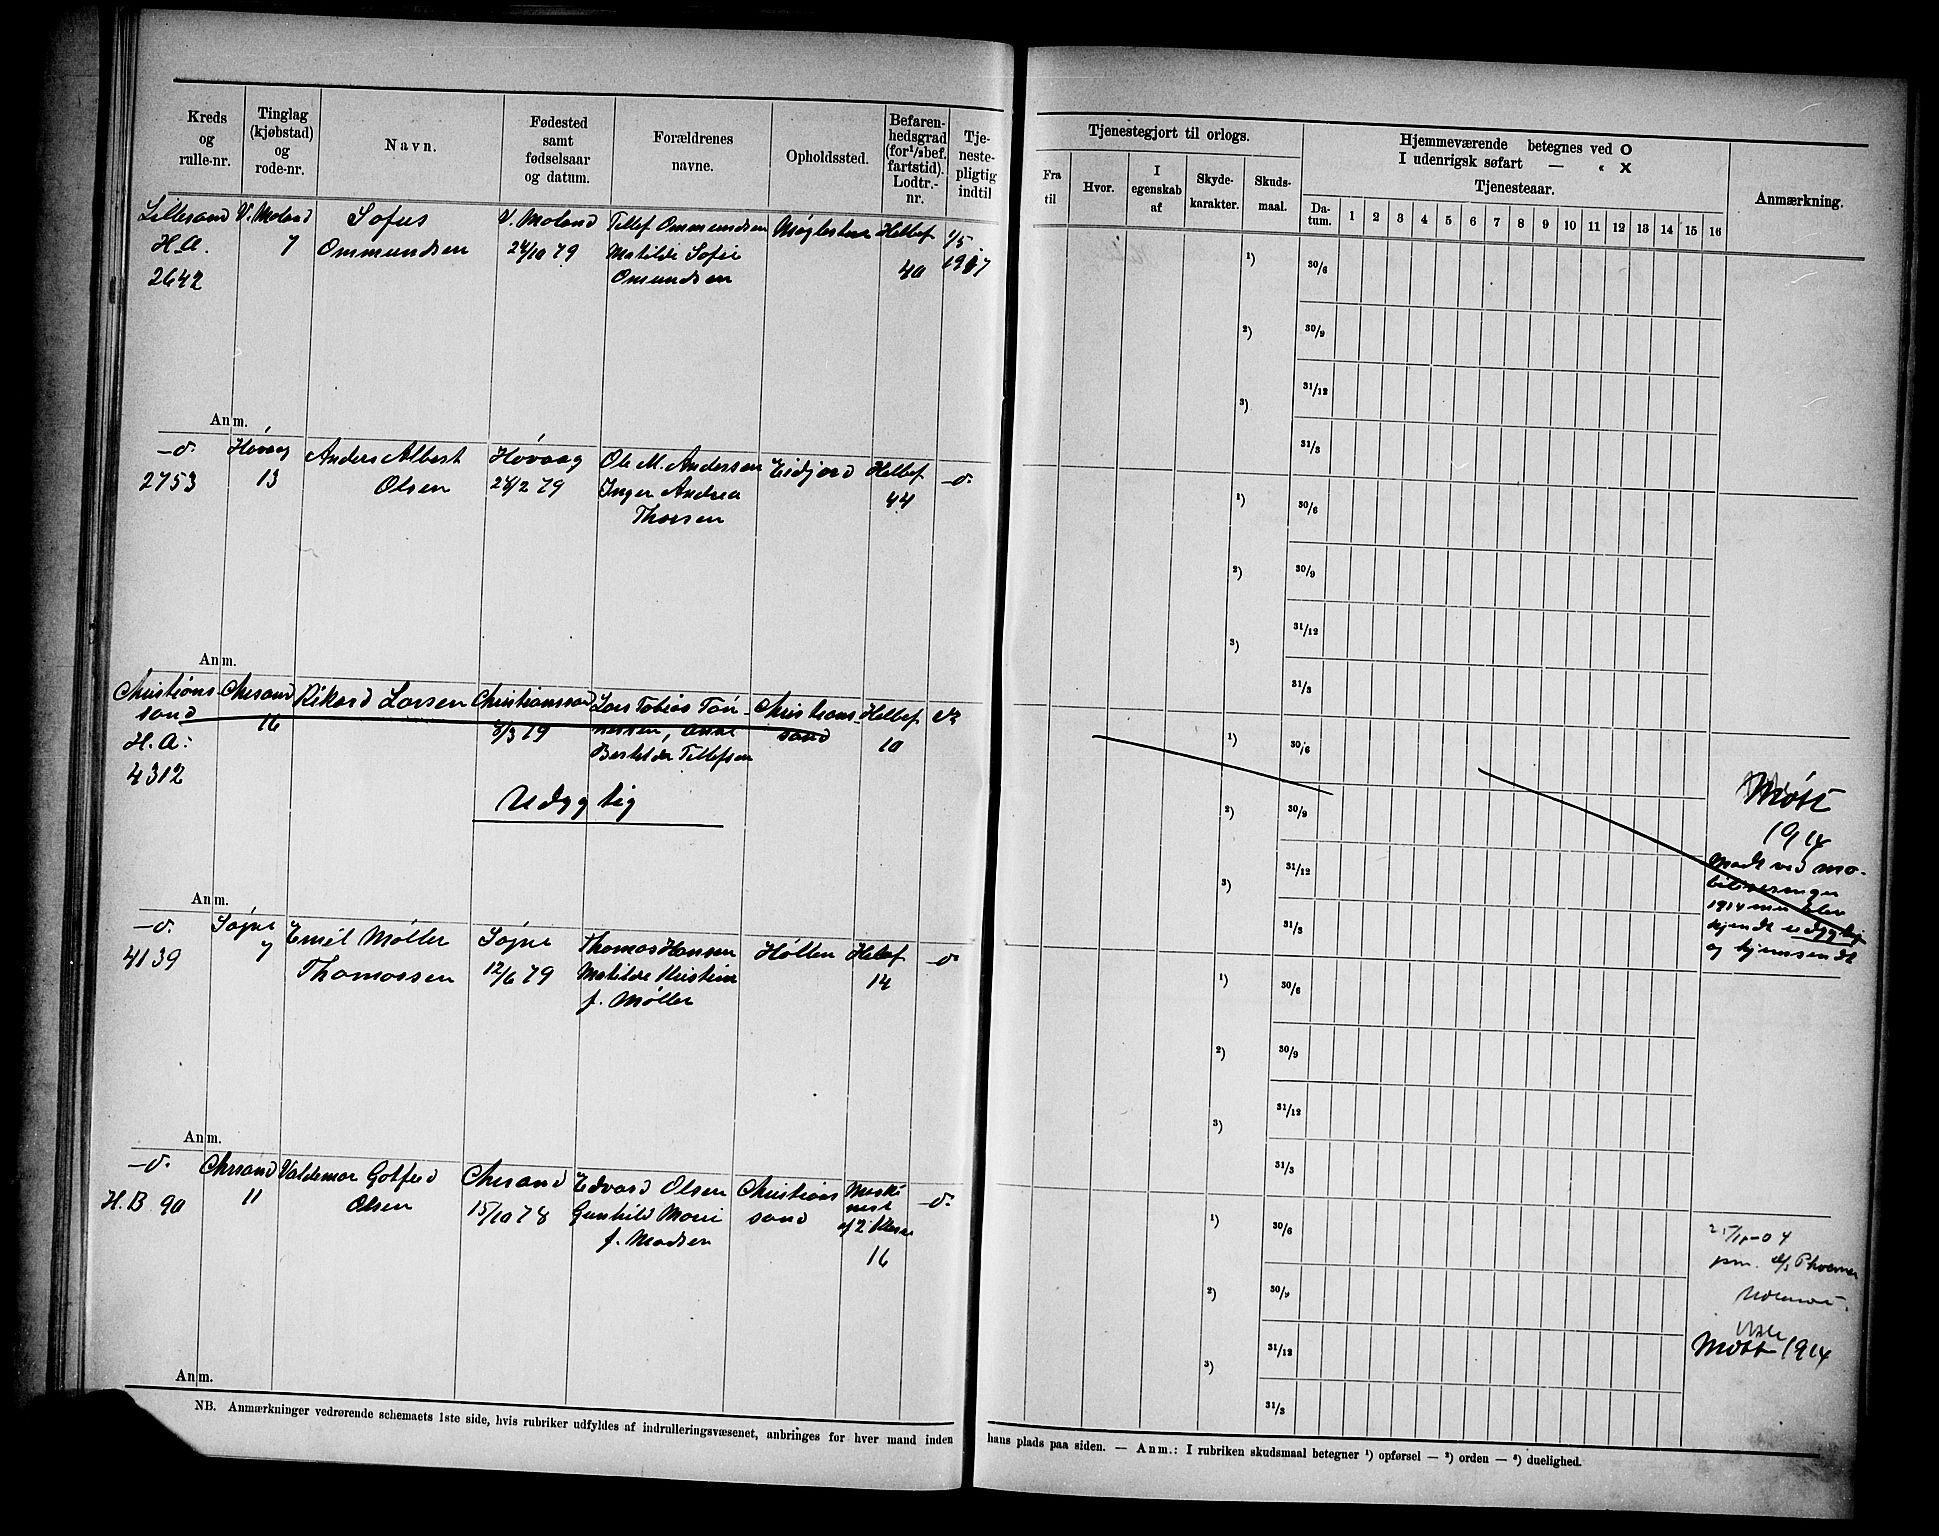 Kreds
og
rulle-nr.
Tinglag
(kjøbstad)
og
rode-nr.
Navn.
Fødested
samt
fødselsaar
og datum.
Forældrenes
navne.
Opholdssted.
Befaren-
hedsgrad
(for ¹/₂bef.
fartstid).
Lodtr.-
nr.
Tje-
neste-
pligtig
indtil
Tjenestegjort til orlogs.
Fra
til
Hvor.
I
egenskab
af
Skyde-
karakter.
Skuds-
maal.
Hjemmeværende betegnes ved O
I udenrigsk søfart — " X
Tjenesteaar.
Da-
tum.
1 2 3 4 5 6 7 8 9 10 11 12 13 14 15 16
Anmærkning.
Lillesand
H.A.
2642
V. Moland
7
Sofus
Ommundsen
V. Moland
24/10 79
Tellef Ommundsen
Matilde Sofie
Omundsen
Helbef
40
1/5
1917
1) 30/6
2) 30/9
31/12
3)
31/3
Anm.
-d-
2753
Høvaag
13
Anders Albert
Olsen
Høvaag
24/2 79
Ole M. Anderssen
Inger Andrea
Thorsen
Eidjord
Helbef
44
-d-
1) 30/6
2) 30/9
31/12
3)
31/3
Anm.
Christians
sand
H.A:
4312
Chrsand
16
Rikard Larsen
Christianssand
8/3 79
Lars Tobias Tøn-
nessen, Anne
Bertilde Tellefsen
Christians
sand
Helbef
10
Udygtig
1) 30/6
2) 30/9
31/12
3)
31/3
Møtt
1914
Mødt ved mo-
biliseringen
1914 men blev
kjendt udygtig
og hjemsendt
Anm.
-d-
4139
Søgne
7
Emil Møller
Thomassen
Søgne
12/6 79
Thomas Hansen
Matilde Kristine
f. Møller
Høllen
Helbef
14
-d-
1) 30/6
2) 30/9
31/12
3)
31/3
Anm.
-d-
H.B 90
Chrsand
11
Valdemar Gotfred
Olsen
Chrsand
15/10 78
Edvard Olsen
Gunhild Marie
f. Madsen
Christians
sand
Maski
nist
af 2 klasse
16
-d-
1) 30/6
2) 30/9
31/12
3)
31/3
Møtt 1914
Anm.
NB. Anmærkninger vedrørende schemaets 1ste side, hvis rubriker udfyldes af indrulleringsvæsenet, anbringes for hver mand inden
hans plads paa siden. — Anm.: I rubriken skudsmaal betegner ¹) opførsel — ²) orden — ³) duelighed.